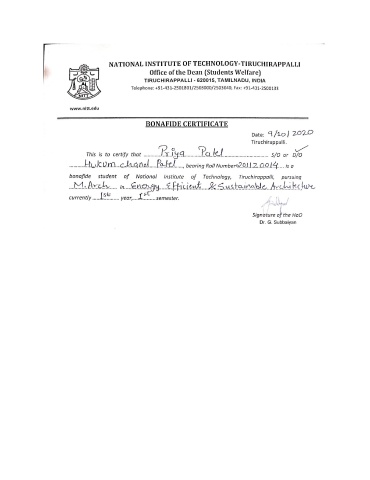 NATIONAL INSTITUTE OF TECHNOLOGY-TIRUCHIRAPPALLI
Office of the Dean (Students Welfare)
TIRUCHIRAPPALLI - 620015, TAMILNADU, INDIA
Telephone: +91-431-2501801/2503000/2503040, Fax: +91-431-2500133
www.nitt.edu
BONAFIDE CERTIFICATE
Date: 9/20/2020
Tiruchirappalli.
This is to certify that Priya Patel S/O or D/O
Hukum chand Patel, bearing Roll Number 201120014 is a
bonafide student of National Institute of Technology, Tiruchirappalli, pursuing
M.Arch in Energy Efficient & Sustainable Architecture
currently 1st year, 1st semester.
Signature of the HoD
Dr. G. Subbaiyan